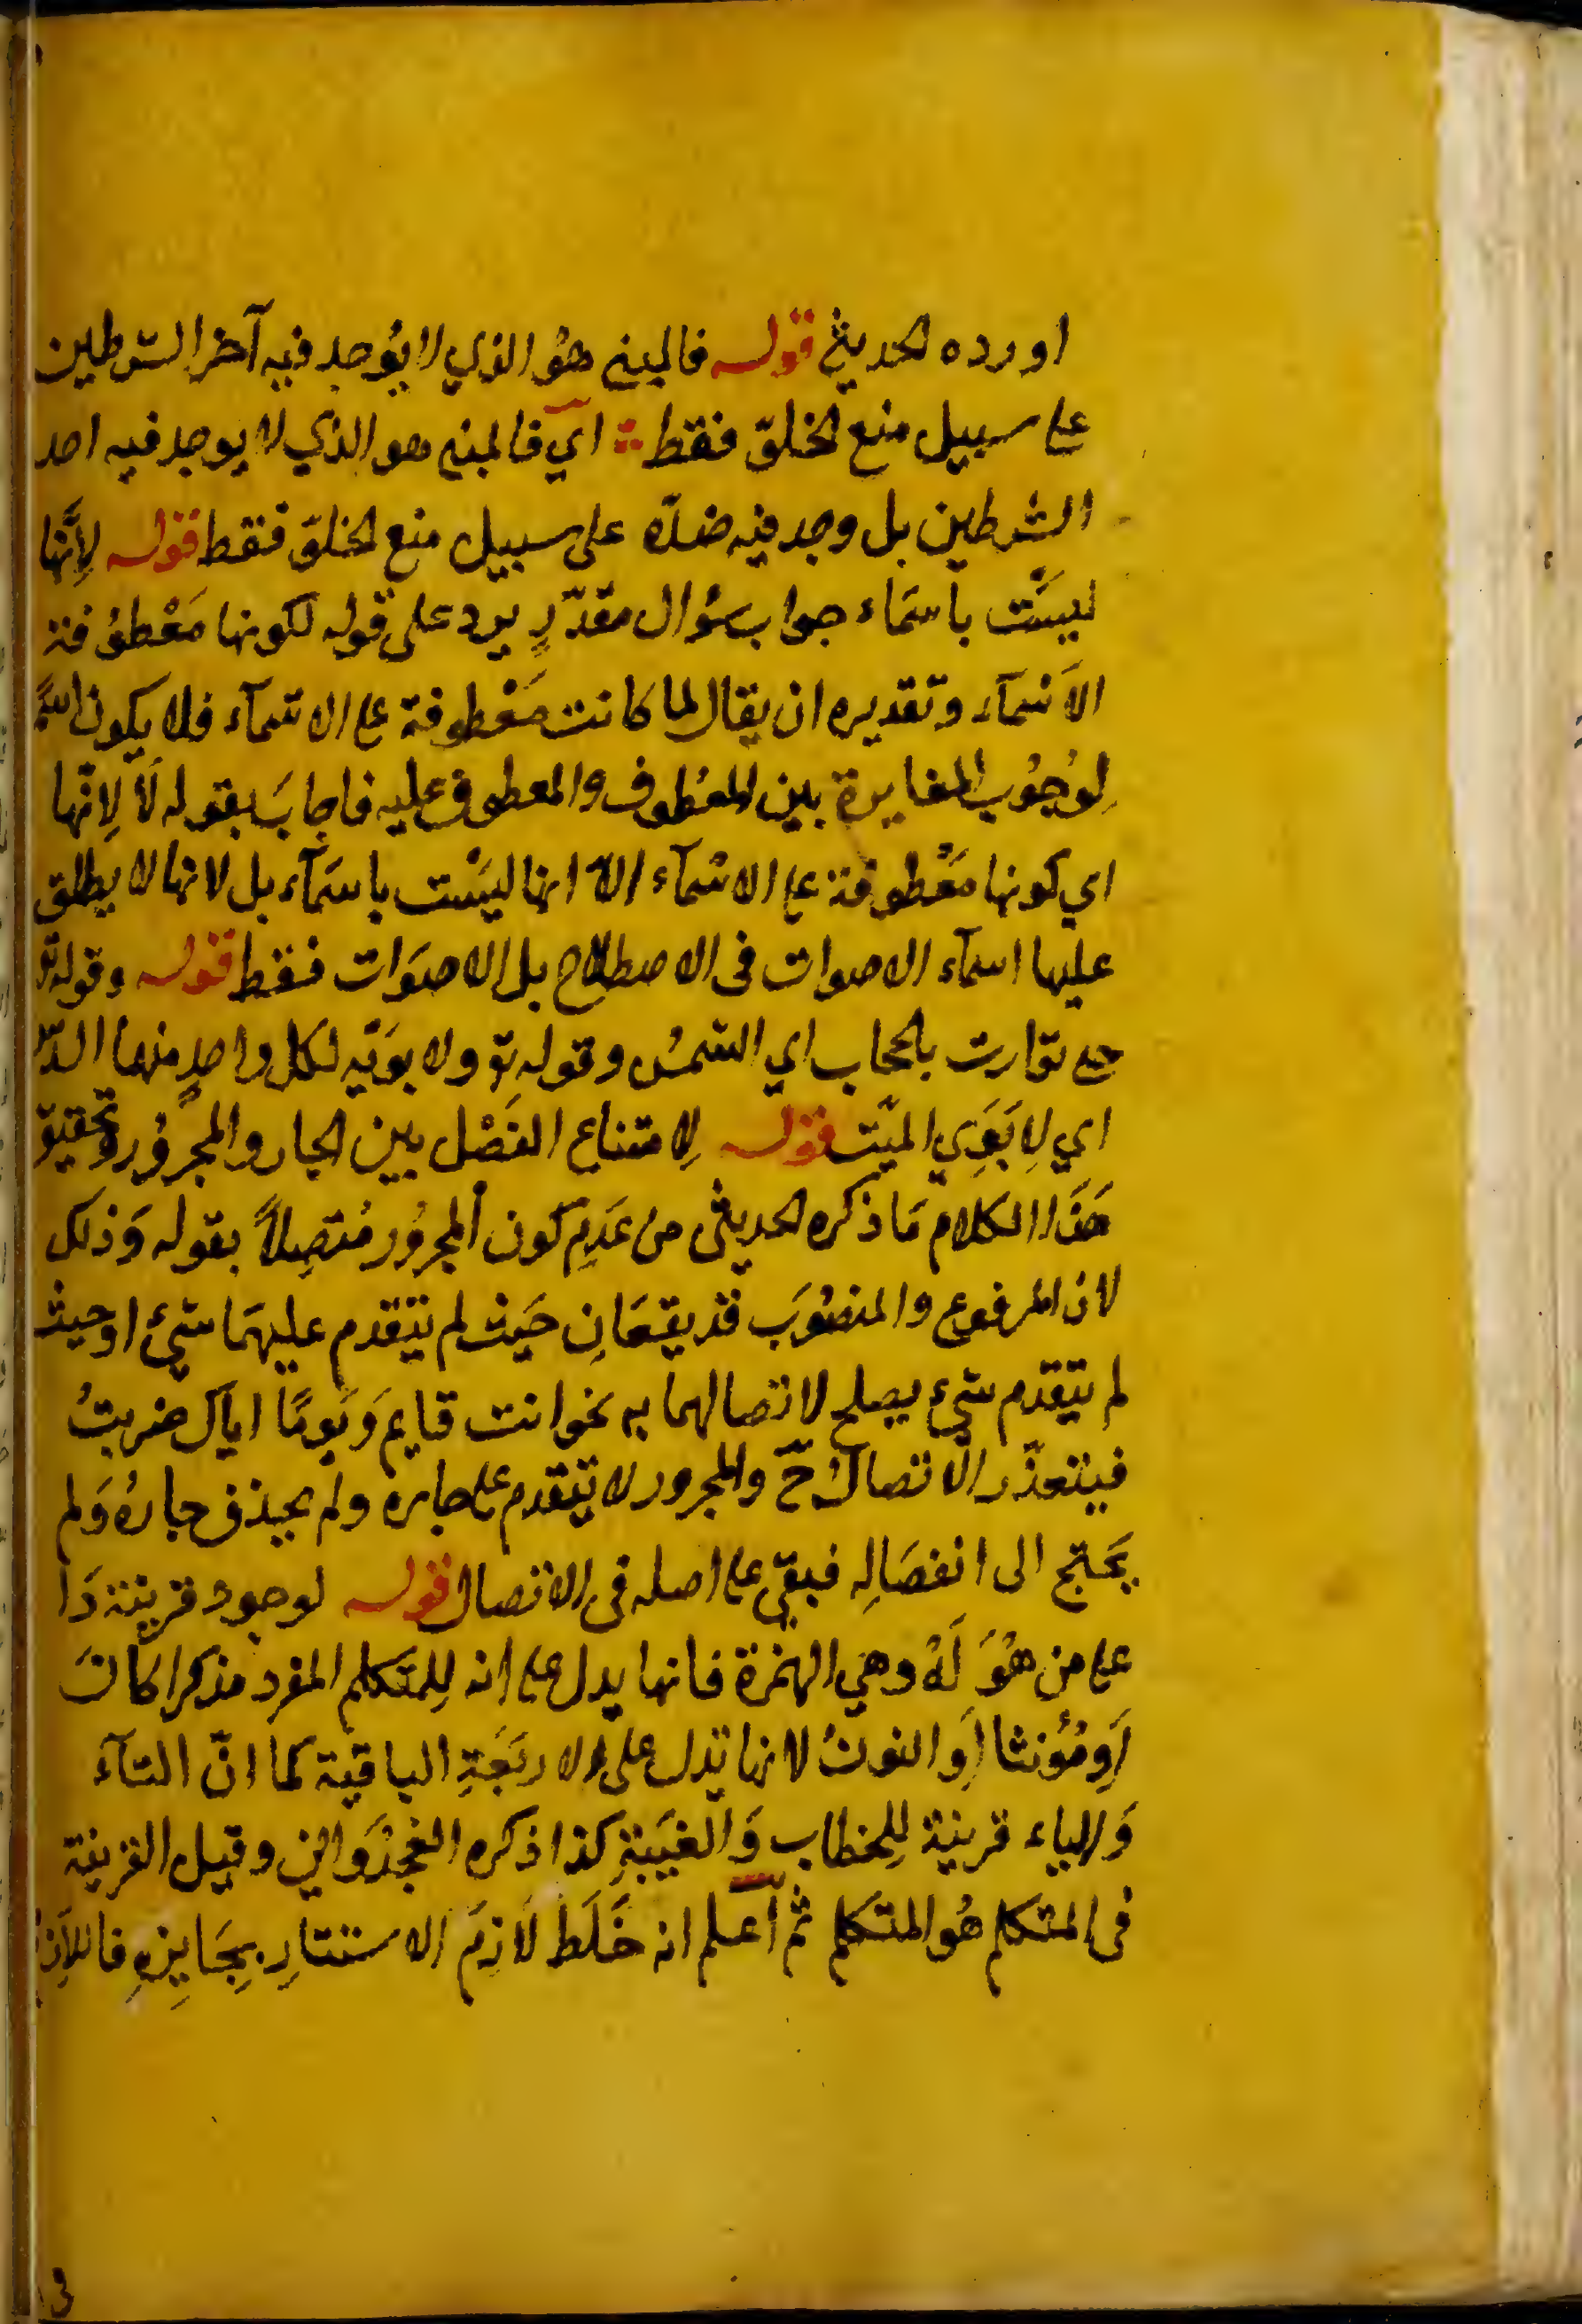 اورده الحديثي قوله فالمبني هُو الذي لا يُوجد فيه آخر الشرطين
على سبيل منع الخلوّ فقط اي فالمبني هو الذي لا يوجد فيه احد
الشرطين بل وجد فيه ضدّه على سبيل منع الخلوّ فقط قوله لِأنَّها
ليسَت باسمَاء جواب سُؤال مقدّرٍ يرد على قوله لكونها مَعْطُوفة
الاَسْمآء وتقديره ان يقال لما كانت مَعْطوفة على الاسمآء فلا يكون
لِوُجُوب المغايرة بين المعْطوف والمعطوف عليه فاجابَ بقوله لَا لِانّها
اي كونها مَعْطوفة على الاسْمآء الاّ انها ليسَت باسمَآء بل لانها لا يطلق
عليها اسمآء الاصوات في الاصطلاح بل الاصوَات فقط قوله وقوله تع
حتى توارت بالحجاب اي الشمسُ وقوله تع ولابوَيْه لكل واحدٍ منهما السّد
اي لِابَوَي الميّت قوله لِامتناع الفَصْل بين الجار والمجرُور وتحقيق
هَذَا الكلام مَا ذكره الحديثي من عَدِم كون المجرُور مُتصِلاً بقوله وَذلك
لان المرفوع والمنصُوبَ قد يقعَانِ حَيث لم يتقدم عليهمَا شيْ او حيث
لم يتقدم شيء يصلح لاتصالهما به نحو انت قايم وَيَومًا اياك ضربتُ
فيتعذّر الاتصالُ حّ والمجرور لا يتقدم على جاره ولم يحذف جارُهُ وَلم
يَحتج الى انفصَالِه فبقي على اصله في الاتصال قوله لوجود قرينة دَا
على من هُوَ لَهُ وهي الهمزة فانها يدل على انه لِلمتكلم المفرد مذكرا كانَ
اَو مُؤنثا اَو النونُ لانها تدل على الاربَعَةِ الباقية كما انّ التآء
وَالياء قرينة لِلخطاب وَالغيَبةِ كذا ذكره الغجدَوَاني وقيل القرينة
في المتكلم هُو المتكلم ثم اَعلم انه خَلَط لَازمَ الاستتارِ بِجَايزِهِ فاللاَزم
في